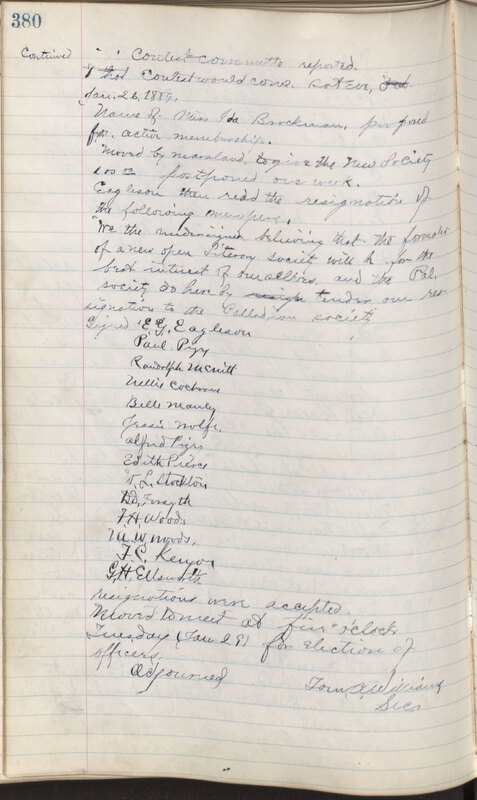 380
Continued " " Contest committe reported
that Contest would come Sat Eve, Feb.
Jan. 26, 1889.
Name of Miss Ida Brockman, proposed
for active membership.
Moved by Marsland to give the New Society
100 00 postponed one week.
Eagleson then read the resignation of
the following members.
We the undersigned believing that the formation
of a new open Literary society will be for the
best interest of ourselves and the Pal.
society do here by resign tender our res
signation to the Palladian society
Signed E.G. Eagleson
Paul Pizey
Randolph McNitt
Nellie Cochran
Belle Manly
Jessie Wolfe.
Alfred Pizey
Edith Pierce
W. L. Stockton
D.D. Forsyth
F.H. Woods
M. W. Woods.
F. C. Kenyon
G.H. Ellsworth
resignations were accepted.
Moved to meet at five o'clock
Tuesday (Jan 29) for election of
officers.
Adjourned Tom A Williams
Secr